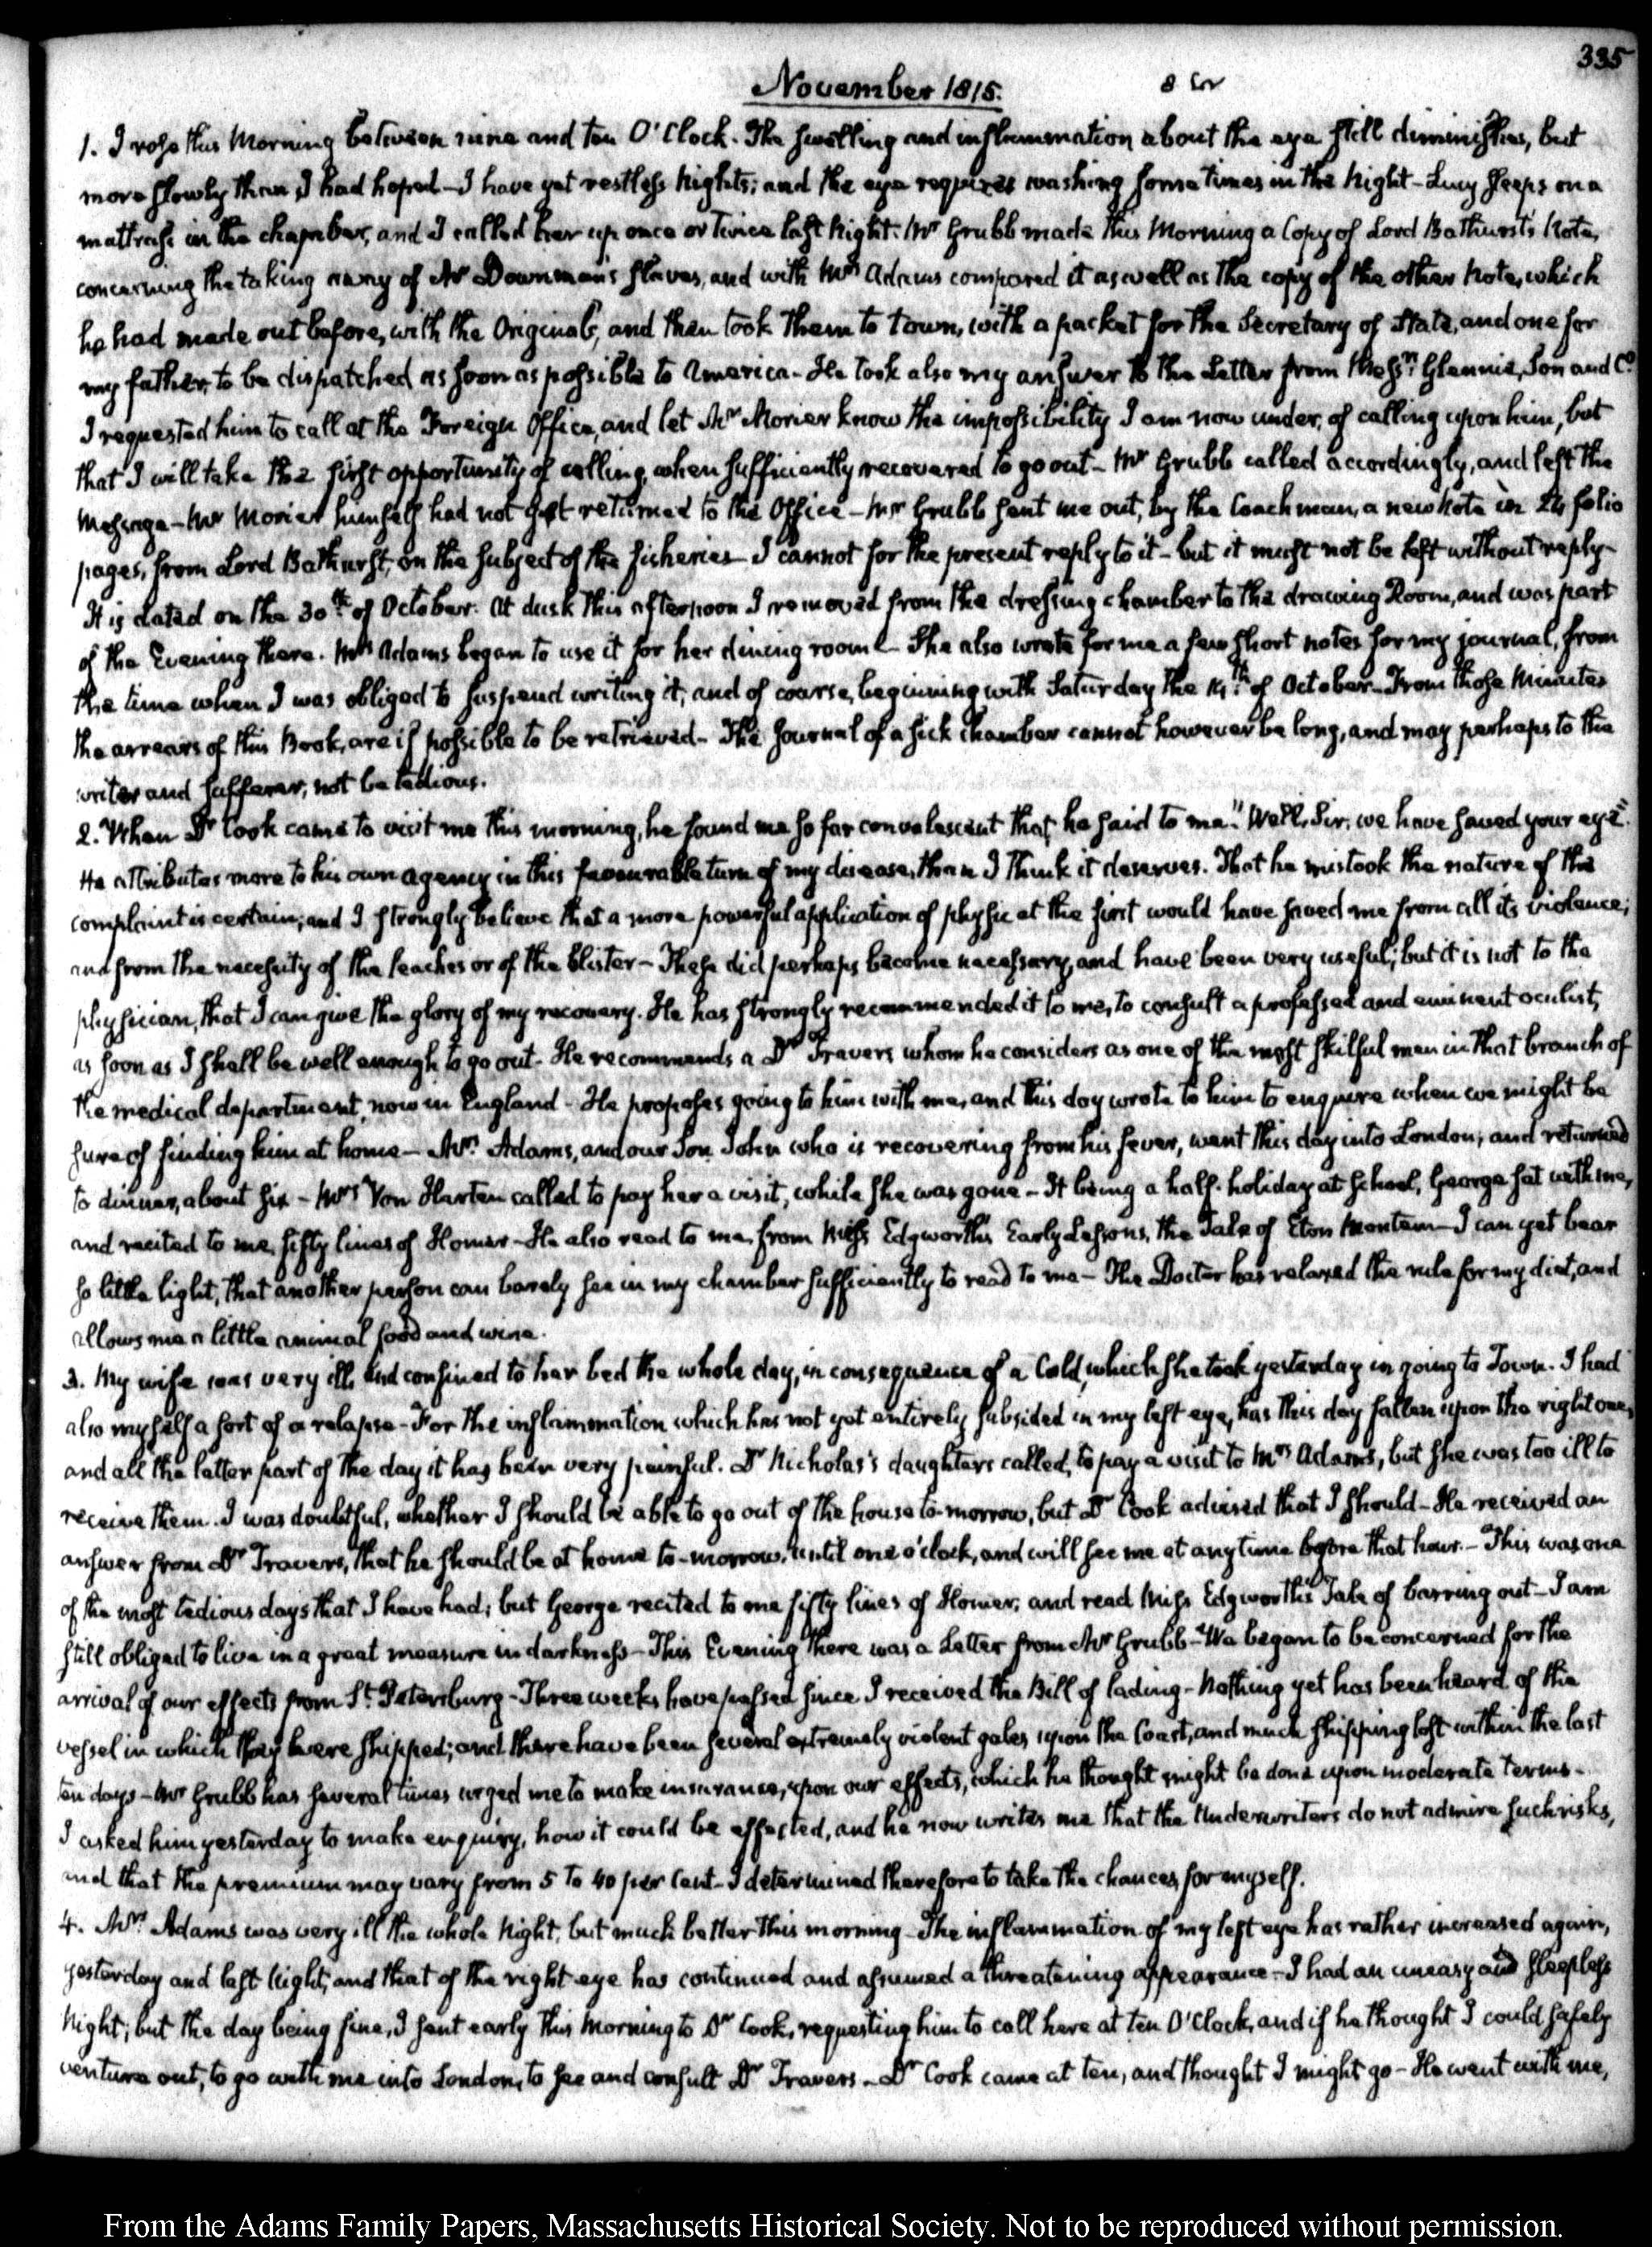 335
November 1815.
1. I rose this Morning between nine and ten O'Clock. The swelling and inflammation about the eye still diminishes, but
more slowly than I had hoped—I have yet restless Nights; and the eye requires washing sometimes in the Night—Lucy sleeps on a
mattrass in the chamber, and I called her up once or twice last Night. Mr Grubb made this Morning a Copy of Lord Bathurst's Note,
concerning the taking away of Mr Downman's slaves, and with Mrs Adams compared it as well as the copy of the other Note, which
he had made out before, with the Originals, and then took them to town, with a packet for the Secretary of State, and one for
my father, to be dispatched as soon as possible to America—He took also my answer to the Letter from Messrs Glennie, Son and Co.
I requested him to call at the Foreign Office, and let Mr Morier know the impossibility I am now under, of calling upon him, but
that I will take the first opportunity of calling, when sufficiently recovered to go out—Mr Grubb called accordingly, and left the
Message—Mr Morier himself had not yet returned to the Office—Mr Grubb sent me out, by the Coachman, a new Note in 24 folio
pages, from Lord Bathurst, on the subject of the fisheries—I cannot for the present reply to it—but it must not be left without reply—
It is dated on the 30th of October. At dusk this afternoon I removed from the dressing chamber to the drawing Room, and was part
of the Evening there. Mrs Adams began to use it for her dining room—She also wrote for me a few short notes for my journal, from
the time when I was obliged to suspend writing it, and of course, beginning with Saturday the 14th of October—From those Minutes
the arrears of this Book, are if possible to be retrieved—The Journal of a sick chamber cannot however be long, and may perhaps to the
writer and sufferer, not be tedious.
2. When Dr Cook came to visit me this morning, he found me so far convalescent that he said to me "Well, Sir, we have saved your eye."
He attributes more to his own agency in this favourable turn of my disease, than I think it deserves. That he mistook the nature of the
complaint is certain; and I strongly believe that a more powerful application of physic at the first would have saved me from all its violence;
and from the necessity of the leaches or of the blister—These did perhaps become necessary, and have been very useful; but it is not to the
physician, that I can give the glory of my recovery. He has strongly recommended it to me, to consult a professed and eminent oculist,
as soon as I shall be well enough to go out. He recommends a Dr Travers whom he considers as one of the most skilful men in that branch of
the medical department, now in England—He proposes going to him with me, and this day wrote to him to enquire when we might be
sure of finding him at home—Mrs Adams, and our Son John who is recovering from his fever, went this day into London; and returned
to dinner, about six—Mrs Von Harten called to pay her a visit, while she was gone—It being a half-holiday at School, George sat with me,
and recited to me, fifty lines of Homer—He also read to me, from Miss Edgworth's Early Lessons, the Tale of Eton Montem—I can yet bear
so little light, that another person can barely see in my chamber sufficiently to read to me—The Doctor has relaxed the rule for my diet, and
allows me a little animal food and wine.
3. My wife was very ill, and confined to her bed the whole day, in consequence of a Cold, which she took yesterday in going to Town. I had
also myself a sort of a relapse—For the inflammation which has not yet entirely subsided in my left eye, has this day fallen upon the right one,
and all the latter part of the day it has been very painful. Dr Nicholas's daughters called, to pay a visit to Mrs Adams, but she was too ill to
receive them. I was doubtful, whether I should be able to go out of the house to-morrow, but Dr Cook advised that I should—He received an
answer from Dr Travers, that he should be at home to-morrow, until one o'clock, and will see me at any time before that hour.—This was one
of the most tedious days that I have had; but George recited to me fifty lines of Homer, and read Miss Edgworth's Tale of barring out—I am
still obliged to live in a great measure in darkness—This Evening there was a Letter from Mr Grubb—We began to be concerned for the
arrival of our effects from St. Petersburg—Three weeks have passed since I received the Bill of lading—Nothing yet has been heard of the
vessel in which they were shipped; and there have been several extremely violent gales upon the Coast, and much shipping lost within the last
ten days—Mr Grubb has several times urged me to make insurance, upon our effects, which he thought might be done upon moderate terms—
I asked him yesterday to make enquiry, how it could be effected, and he now writes me that the Underwriters do not admire such risks,
and that the premium may vary from 5 to 40 per Cent—I determined therefore to take the chances for myself.
4. Mrs Adams was very ill the whole Night, but much better this morning—The inflammation of my left eye has rather increased again,
yesterday and last Night, and that of the right eye has continued and assumed a threatening appearance—I had an uneasy and sleepless
Night; but the day being fine, I sent early this Morning to Dr Cook, requesting him to call here at ten O'Clock, and if he thought I could safely
venture out, to go with me into London, to see and consult Dr Travers—Dr Cook came at ten, and thought I might go—He went with me,
From the Adams Family Papers, Massachusetts Historical Society. Not to be reproduced without permission.